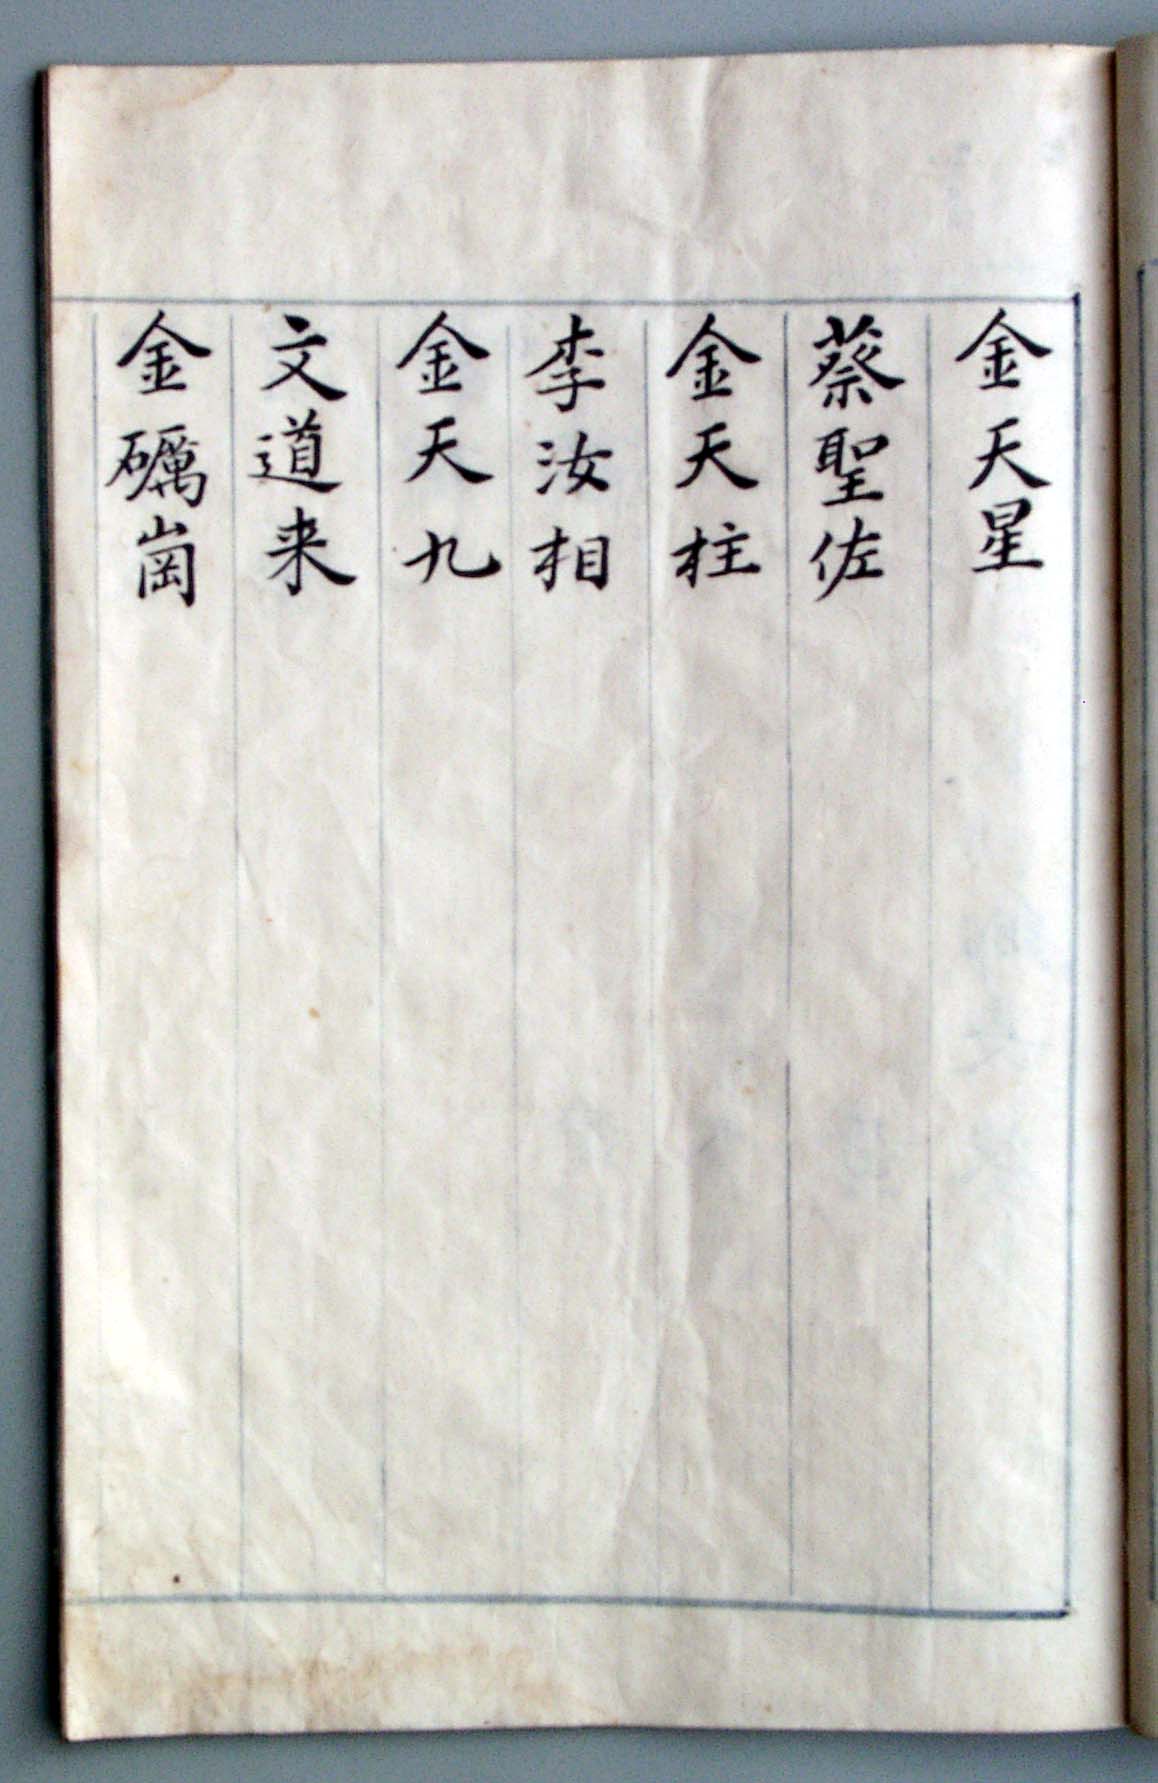 金天星
蔡聖佐
金天柱
李汝相
金天九
文道来
金礪崗